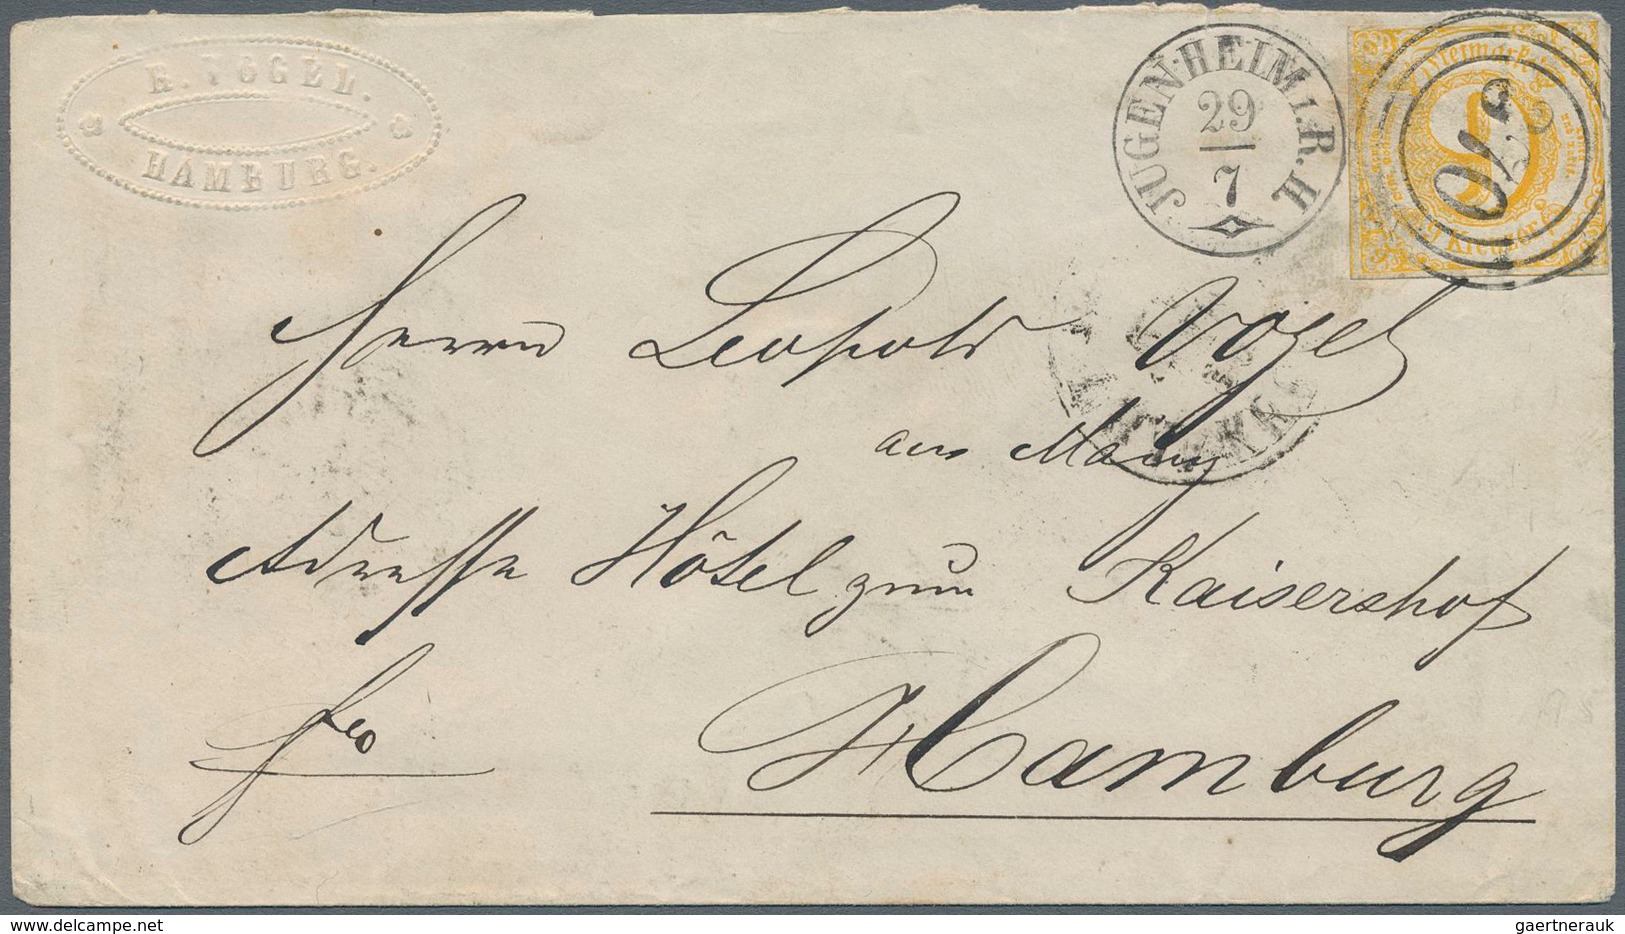 H. VOGEL.
HAMBURG.
JUGENHEIM I. R. H.
29
7
Freimarke
9
9 Kreuzer
370
Herrn Leopold Vogel
aus Mainz
Adresse Hôtel zum Kaisershof
fco
Hamburg
gaertnerauk